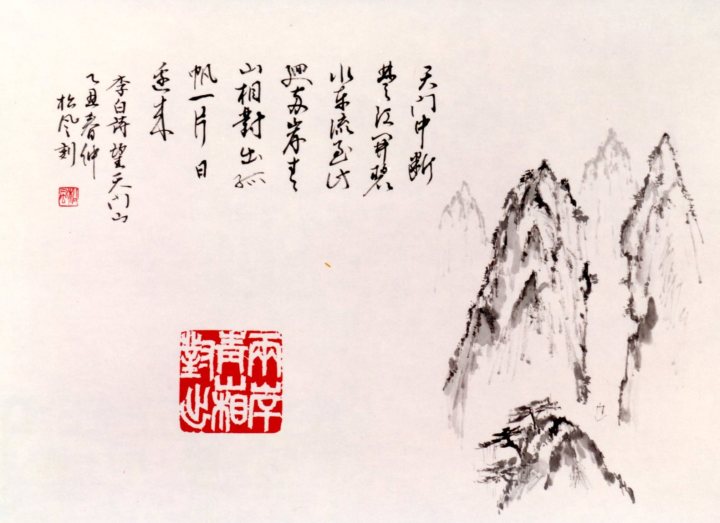 天门中断
楚江开碧
水东流至此
廻两岸青
山相對出孤
帆一片日
边来
李白诗望天门山
乙丑春仲
松风刻
兩岸
青山相
對出